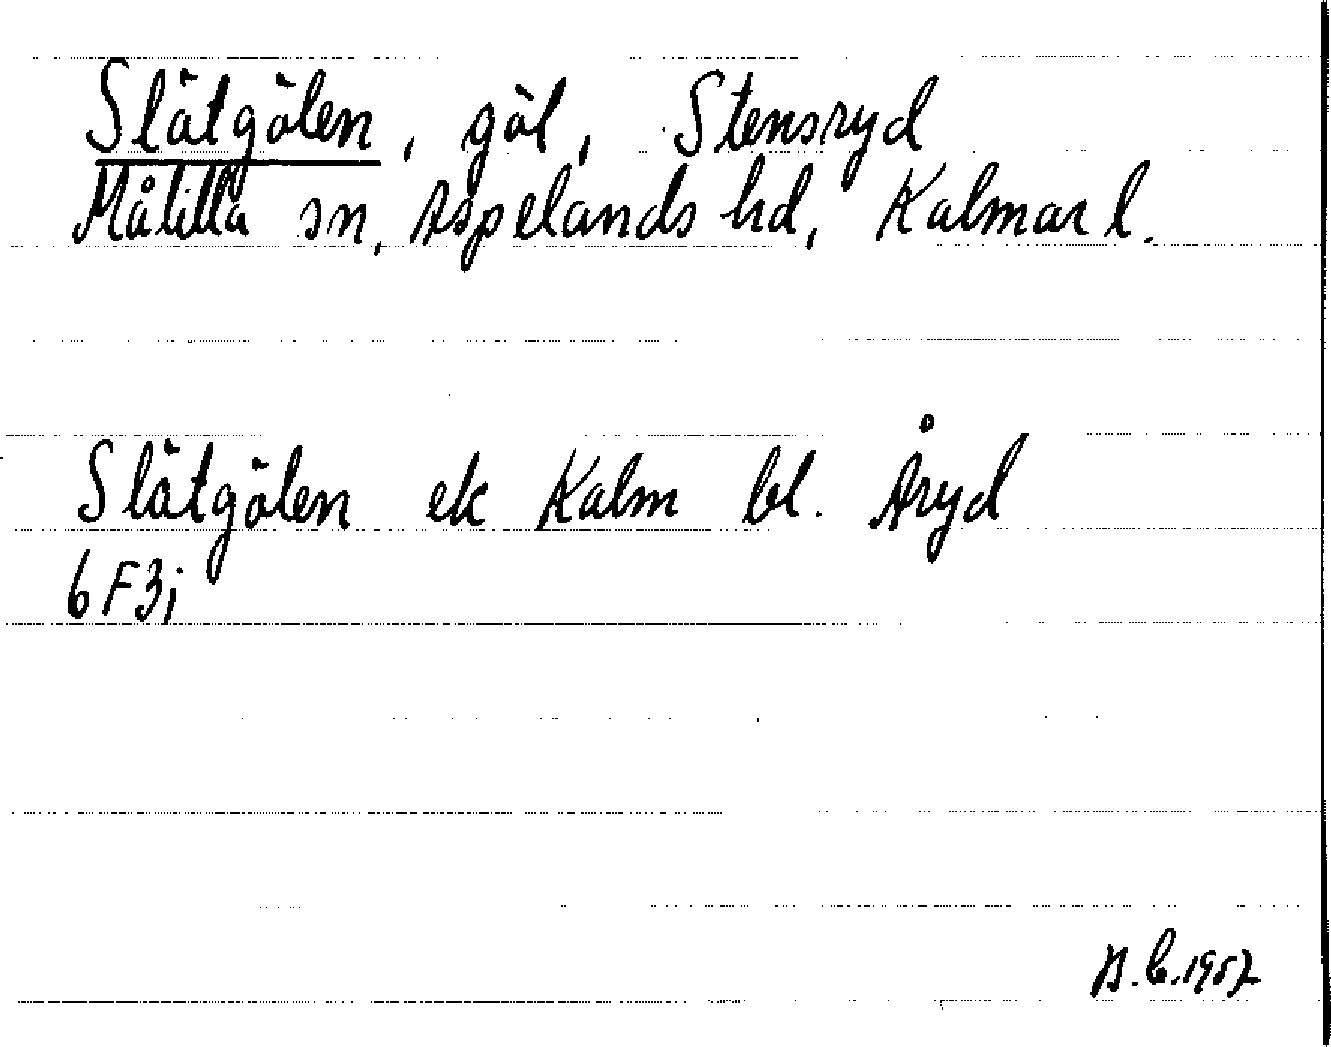 Slätgölen, göl, Stensryd
Målilla sn, Aspelands hd, Kalmar l.
Slätgölen ek Kalm bl. Åryd
6F3j
1957